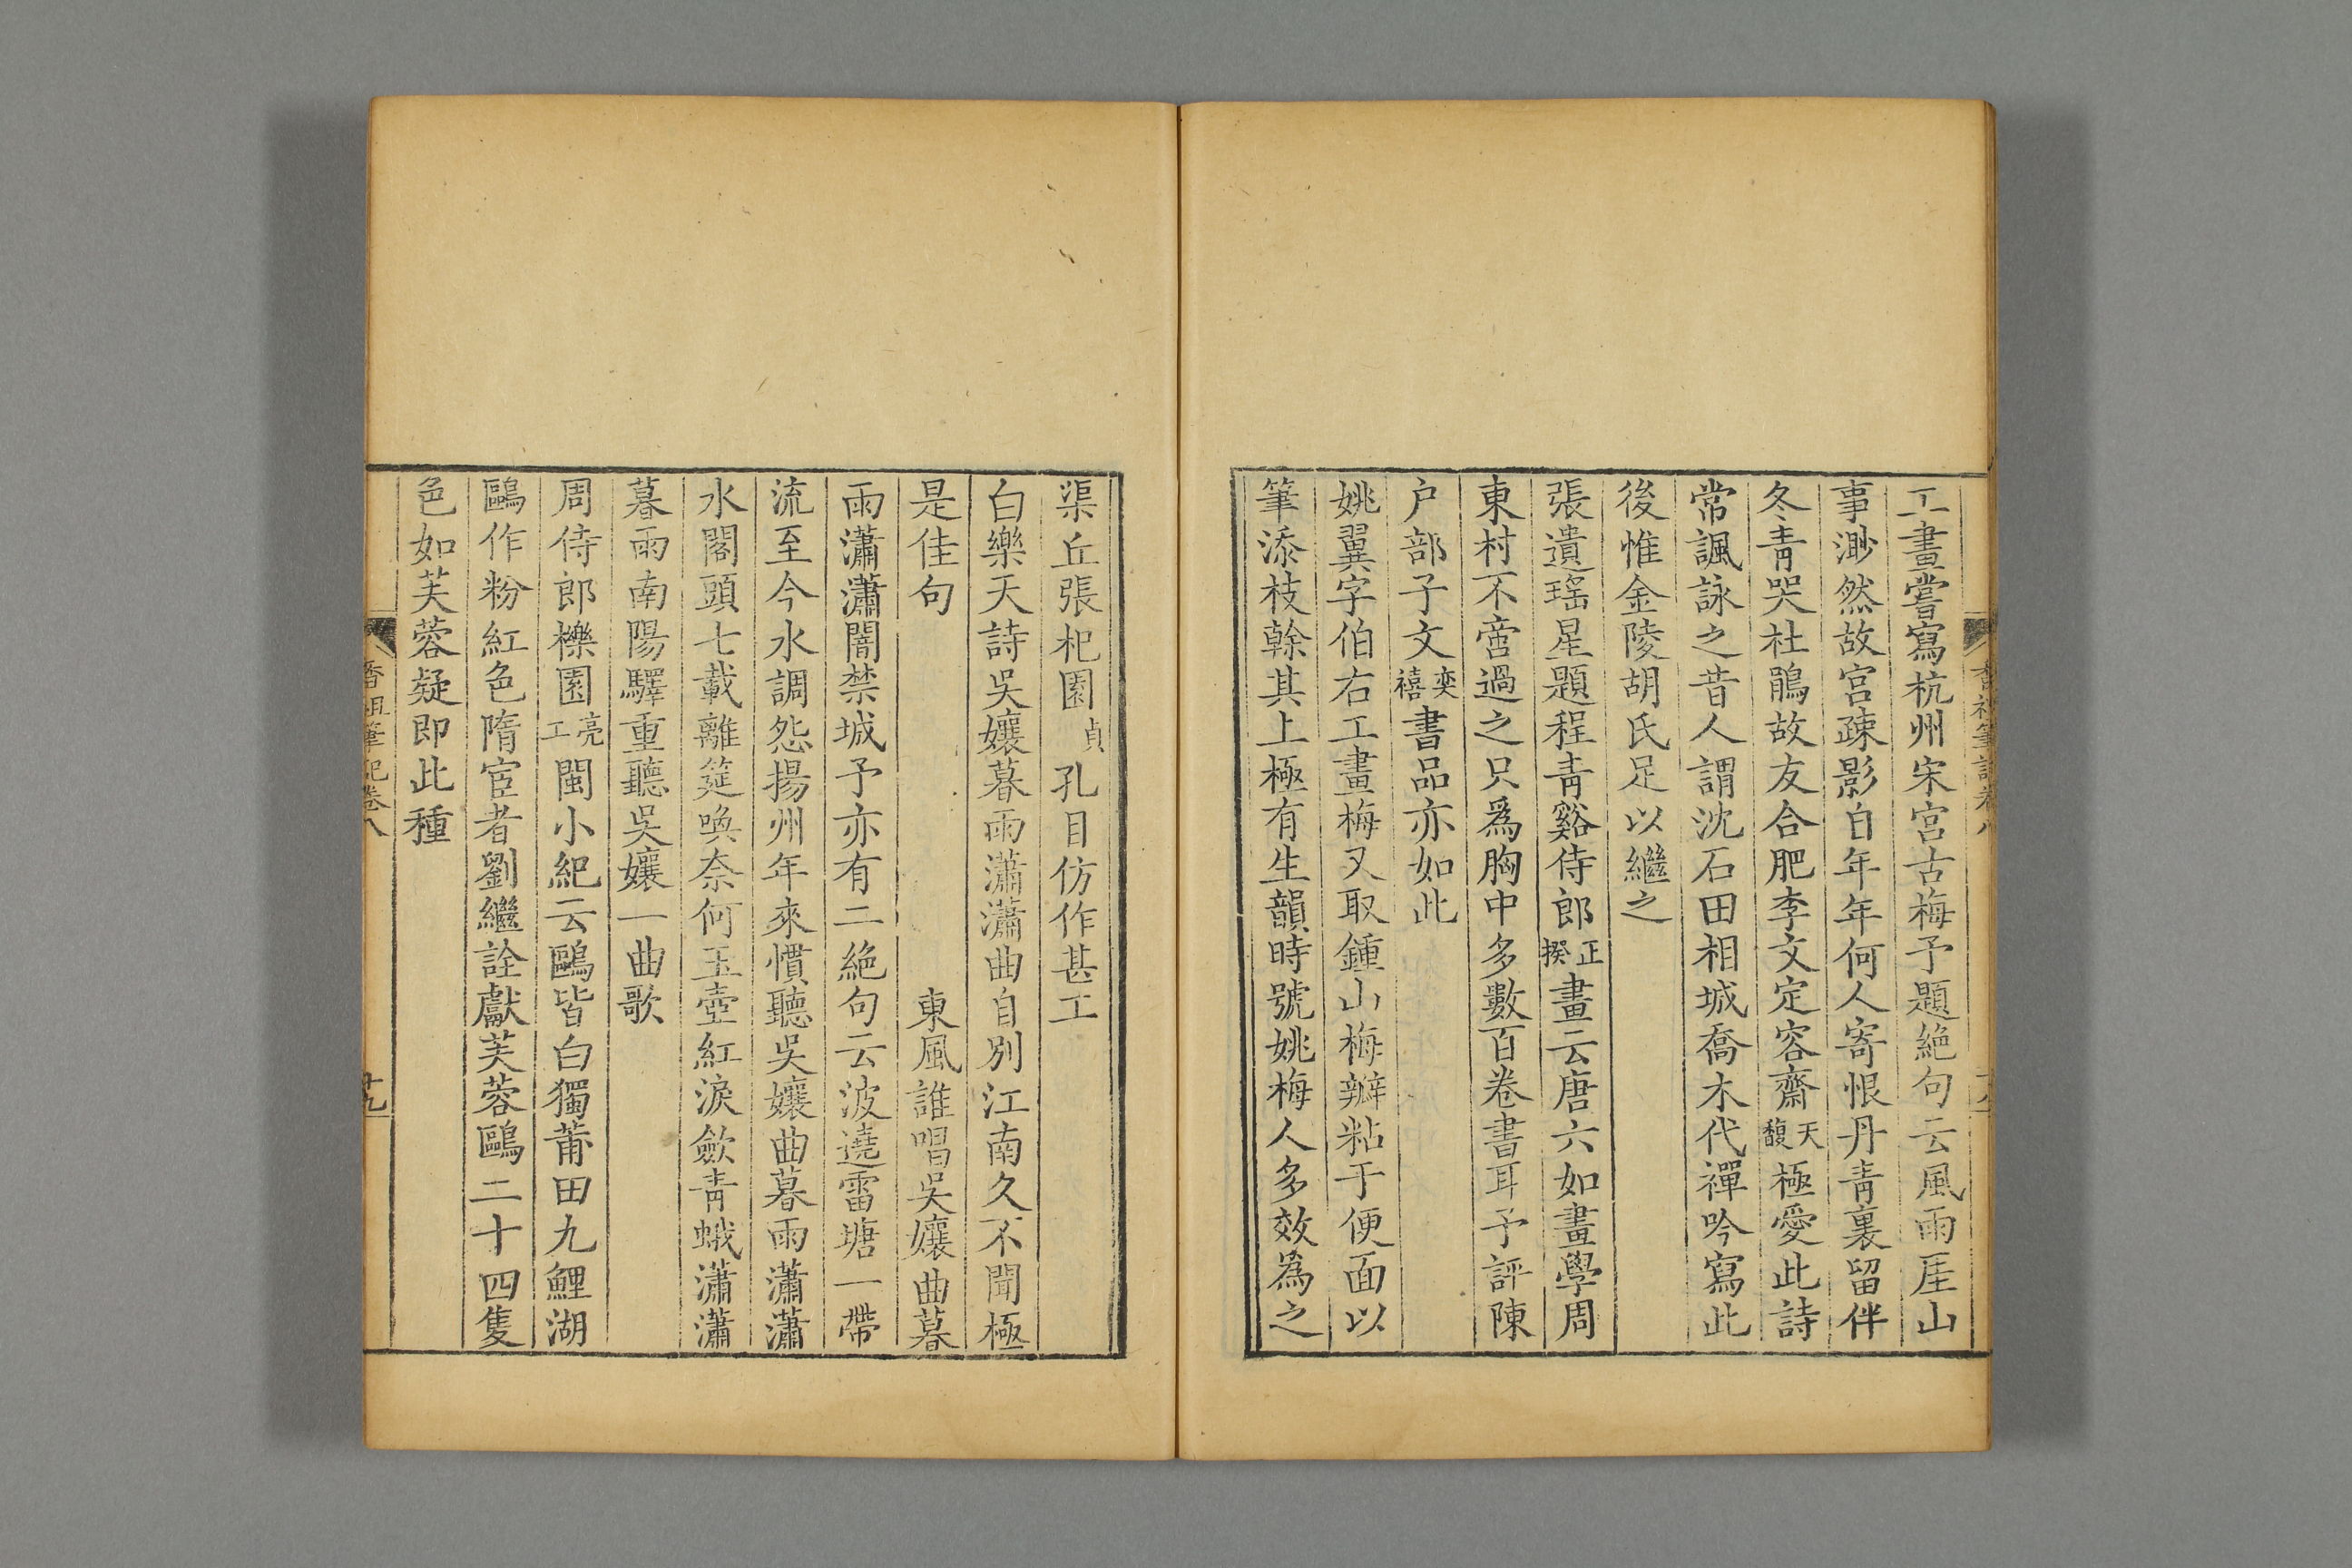 工畫嘗寫杭州宋宮古梅予題絕句云風雨厓山
事渺然故宮疎影自年年何人寄恨丹青裏留伴
冬青哭杜鵑故友合肥李文定容齋天馥極愛此詩
常諷詠之昔人謂沈石田相城喬木代禪吟寫此
後惟金陵胡氏足以繼之
張遺瑤星題程青谿侍郎正揆畫云唐六如畫學周
東村不啻過之只爲胸中多數百卷書耳予評陳
户部子文奕禧書品亦如此
姚翼字伯右工畫梅又取鍾山梅瓣粘于便面以
筆添枝榦其上極有生韻時號姚梅人多效爲之
渠丘張杞園貞孔目仿作甚工
白樂天詩吳孃暮雨瀟瀟曲自別江南久不聞極
是佳句　東風誰唱吳孃曲暮
雨瀟瀟闇禁城予亦有二絕句云波遶雷塘一帶
流至今水調怨揚州年來慣聽吳孃曲暮雨瀟瀟
水閣頭七載離筵喚奈何玉壺紅淚斂青蛾瀟瀟
暮雨南陽驛重聽吳孃一曲歌
周侍郎櫟園亮工閩小紀云鷗皆白獨莆田九鯉湖
鷗作粉紅色隋宦者劉繼詮獻芙蓉鷗二十四隻
色如芙蓉疑即此種
香祖筆記卷八
十九